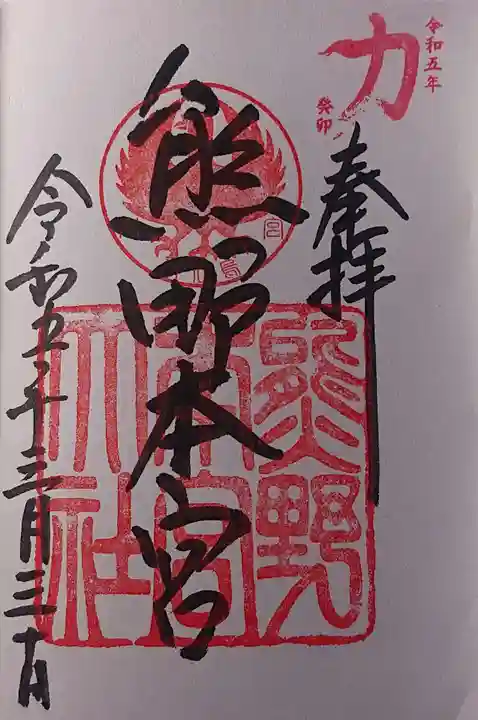 令和五年
力
癸卯
奉拝
熊野本宮
熊野
本宮
大社
令和五年三月三十日